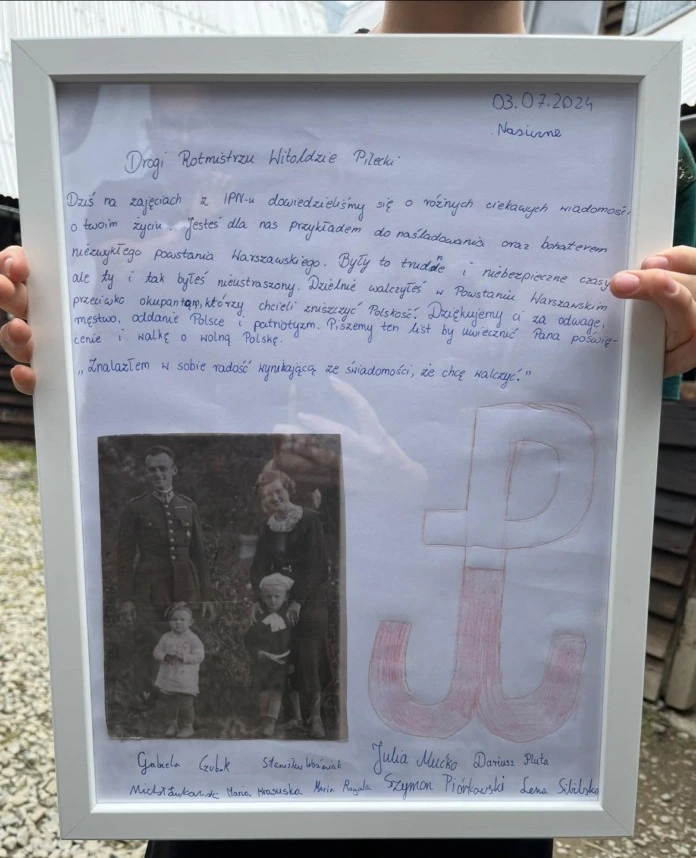 03.07.2024
Nasiczne
Drogi Rotmistrzu Witoldzie Pilecki
Dziś na zajęciach z IPN-u dowiedzieliśmy się o różnych ciekawych wiadomości
o twoim życiu. Jesteś dla nas przykładem do naśladowania oraz bohaterem
niezwykłego powstania Warszawskiego. Były to trudne i niebezpieczne czasy
ale ty i tak byłeś nieustraszony. Dzielnie walczyłeś w Powstaniu Warszawskim
przeciwko okupantom, którzy chcieli zniszczyć Polskość. Dziękujemy ci za odwagę,
męstwo, oddanie Polsce i patriotyzm. Piszemy ten list by uwiecznić Pana poświę-
cenie i walkę o wolną Polskę.
„Znalazłem w sobie radość wynikającą ze świadomości, że chcę walczyć!"
Gabriela Czubak Stanisław Woźniak Julia Mućko Dariusz Pluta
Maria Maria Rogala Szymon Piórkowski Lena